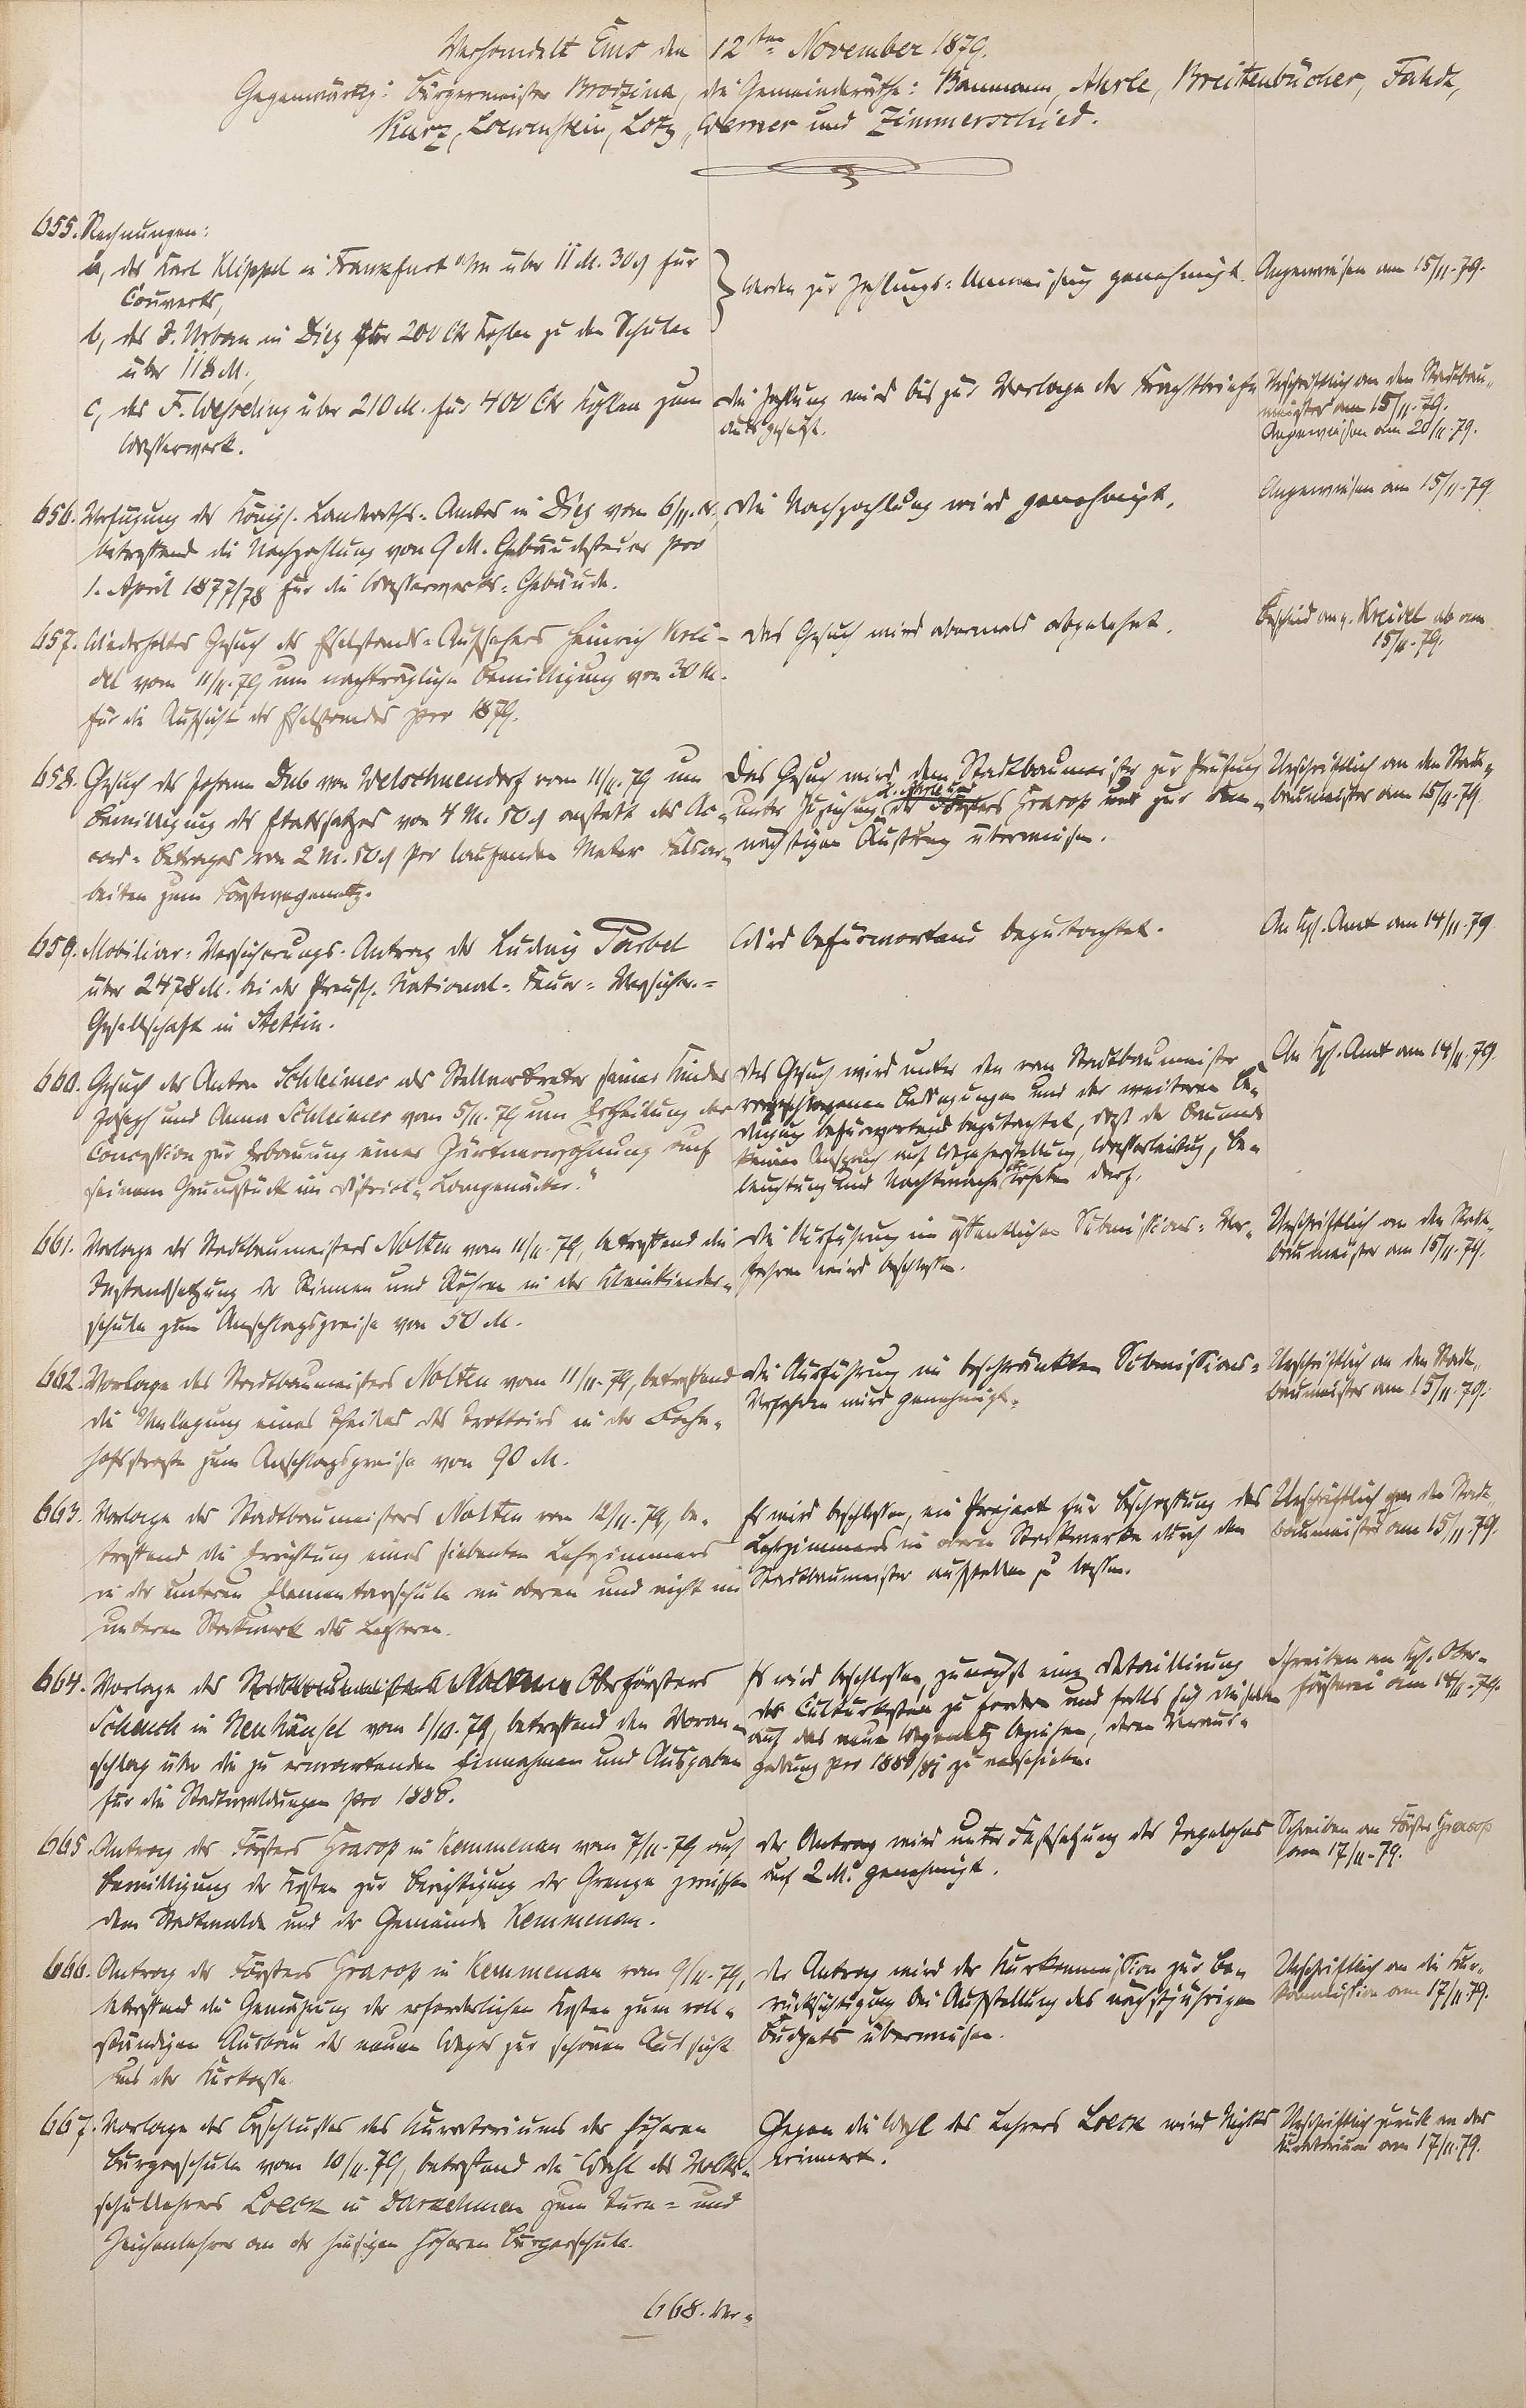 Verhandelt Ems den 12ten November 1879.
Gegenwärtig: Bürgermeister Brodzina, die Gemeinderäthe: Baumann, Ahrle, Breitenbücher, Fahdt,
Kurz, Loewenstein, Lotz, Werner und Zimmerschied.
655. Rechnungen:
a, des Karl Klippel in Frankfurt a/m über 11 M. 30 ₰ für
Couverts,
b, des J. Urban in Diez für 200 Ctr Kohlen zu den Schulen
über 118 M.,
werden zur Zahlungs-Anweisung genehmigt.
Angewiesen am 15/11.79.
c, des F. Wehrding über 210 M. für 400 Ctr Kohlen zum
Wasserwerk.
Die Zahlung wird bis zur Vorlage der Frachtbriefe
ausgesetzt.
Urschriftlich an den Stadtbau-
meister am 15/11.79.
Angewiesen am 20/11.79.
656. Verfügung des Königl. Landraths-Amtes in Diez vom 6/11. cr,
betreffend die Nachzahlung von 9 M. Gebäudesteuer pro
1. April 1877/78 für die Wasserwerks-Gebäude.
Die Nachzahlung wird genehmigt.
Angewiesen am 15/11.79.
657. Wiederholtes Gesuch des Eselstands-Aufsehers Heinrich Krei-
del vom 11/11.79 um nachträgliche Bewilligung von 30 M.
für die Aufsicht des Eselstandes pro 1879.
Das Gesuch wird abermals abgelehnt.
Bescheid an p. Kreidel ab am
15/11.79.
658. Gesuch des Johann Dub von Welschneudorf vom 11/11.79 um
Bewilligung des Etatssatzes von 4 M. 50 ₰ anstatt des Ac-
cord-Betrages von 2 M. 50 ₰ pro laufenden Meter Felsar-
beiten zum Forstwegenetz.
Das Gesuch wird dem Stadtbaumeister zur Prüfung
unter Zuziehung des Försters Grasop und zur dem-
nächstigen Äußerung überwiesen.
Urschriftlich an den Stadt-
baumeister am 15/11.79.
659. Mobiliar-Versicherungs-Antrag des Ludwig Farbel
über 2478 M. bei der Preuß. National-Feuer-Versicher.-
Gesellschaft in Stettin.
Wird befürwortend begutachtet.
An Kgl. Amt am 14/11.79.
660. Gesuch des Anton Schleimer als Stellvertreter seiner Kinder
Joseph und Anna Schleimer vom 5/11.79 um Ertheilung der
Concession zur Erbauung einer Gärtnerwohnung auf
seinem Grundstück im District „Langenäcker."
Das Gesuch wird unter den vom Stadtbaumeister
vorgeschlagenen Bedingungen und der weiteren Be-
dingung befürwortend begutachtet, daß der Bauende
keinen Anspruch auf Wegeherstellung, Wasserleitung, Be-
leuchtung und Nachtwache erheben darf.
An Kgl. Amt am 14/11.79.
661. Vorlage des Stadtbaumeisters Nolten vom 11/11.79, betreffend die
Instandsetzung der Rinnen und Röhren in der Kleinkinder-
schule zum Anschlagspreise von 50 M.
Die Ausführung im öffentlichen Submissions-Ver-
fahren wird beschlossen.
Urschriftlich an den Stadt-
baumeister am 15/11.79.
662. Vorlage des Stadtbaumeisters Nolten vom 11/11.79, betreffend
die Umlegung eines Theiles des Trottoirs in der Bahn-
hofsstraße zum Anschlagspreise von 90 M.
Die Ausführung im beschränkten Submissions-
Verfahren wird genehmigt.
Urschriftlich an den Stadt-
baumeister am 15/11.79.
663. Vorlage des Stadtbaumeisters Nolten vom 12/11.79, be-
treffend die Errichtung eines siebenten Lehrzimmers
in der unteren Elementarschule im oberen und nicht im
unteren Stockwerk des Letzteren.
Es wird beschlossen, ein Project zur Beschaffung des
Lehrzimmers im oberen Stockwerke durch den
Stadtbaumeister aufstellen zu lassen.
Urschriftlich an den Stadt-
baumeister am 15/11.79.
664. Vorlage des Oberförsters
Schensch in Neuhäusel vom 1/10.79, betreffend den Voran-
schlag über die zu erwartenden Einnahmen und Ausgaben
für die Stadtwaldungen pro 1880.
Es wird beschlossen, zunächst eine Detaillirung
der Culturkosten zu fordern und falls sich dieselben
auf das neue Wegenetz beziehen, deren Veraus-
gabung pro 1880/81 zu verschieben.
Schreiben an Kgl. Ober-
försterei am 14/11.79.
665. Antrag des Försters Grasop in Kemmenau vom 7/11.79 auf
Bewilligung der Kosten zur Berichtigung der Grenze zwischen
dem Stadtwalde und der Gemeinde Kemmenau.
Der Antrag wird unter Festsetzung des Tagelohns
auf 2 M. genehmigt.
Schreiben an Förster Grasop
am 17/11.79.
666. Antrag des Försters Grasop in Kemmenau vom 9/11.79,
betreffend die Genehmigung der erforderlichen Kosten zum voll-
ständigen Ausbau des neuen Weges zur schönen Aussicht
aus der Kurkasse.
Der Antrag wird der Kurkommission zur Be-
rücksichtigung bei Aufstellung des nächstjährigen
Budgets überwiesen.
Urschriftlich an die Kur-
kommission am 17/11.79.
667. Vorlage des Beschlusses des Kuratoriums der höheren
Bürgerschule vom 10/11.79, betreffend die Wahl des Volks-
schullehrers Loeck in Darkehmen zum Turn- und
Zeichenlehrer an der hiesigen höheren Bürgerschule.
Gegen die Wahl des Lehrers Loeck wird Nichts
erinnert.
Urschriftlich zurück an das
Kuratorium am 17/11.79.
668. Ver-